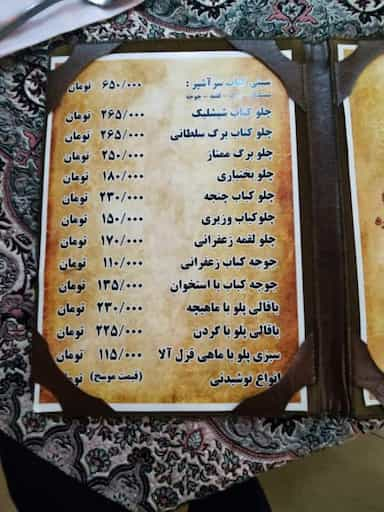 سینی کباب سرآشپز : ۶۵۰/۰۰۰ تومان
چلو کباب شیشلیک ۲۶۵/۰۰۰ تومان
چلو کباب برگ سلطانی ۲۶۵/۰۰۰ تومان
چلو برگ ممتاز ۲۵۰/۰۰۰ تومان
چلو بختیاری ۱۸۰/۰۰۰ تومان
چلو کباب چنجه ۲۳۰/۰۰۰ تومان
چلوکباب وزیری ۱۵۰/۰۰۰ تومان
چلو لقمه زعفرانی ۱۷۰/۰۰۰ تومان
جوجه کباب زعفرانی ۱۱۰/۰۰۰ تومان
جوجه کباب با استخوان ۱۳۵/۰۰۰ تومان
باقالی پلو با ماهیچه ۲۳۰/۰۰۰ تومان
باقالی پلو با گردن ۲۲۵/۰۰۰ تومان
سبزی پلو با ماهی قزل آلا ۱۱۵/۰۰۰ تومان
انواع نوشیدنی (قیمت موسج)